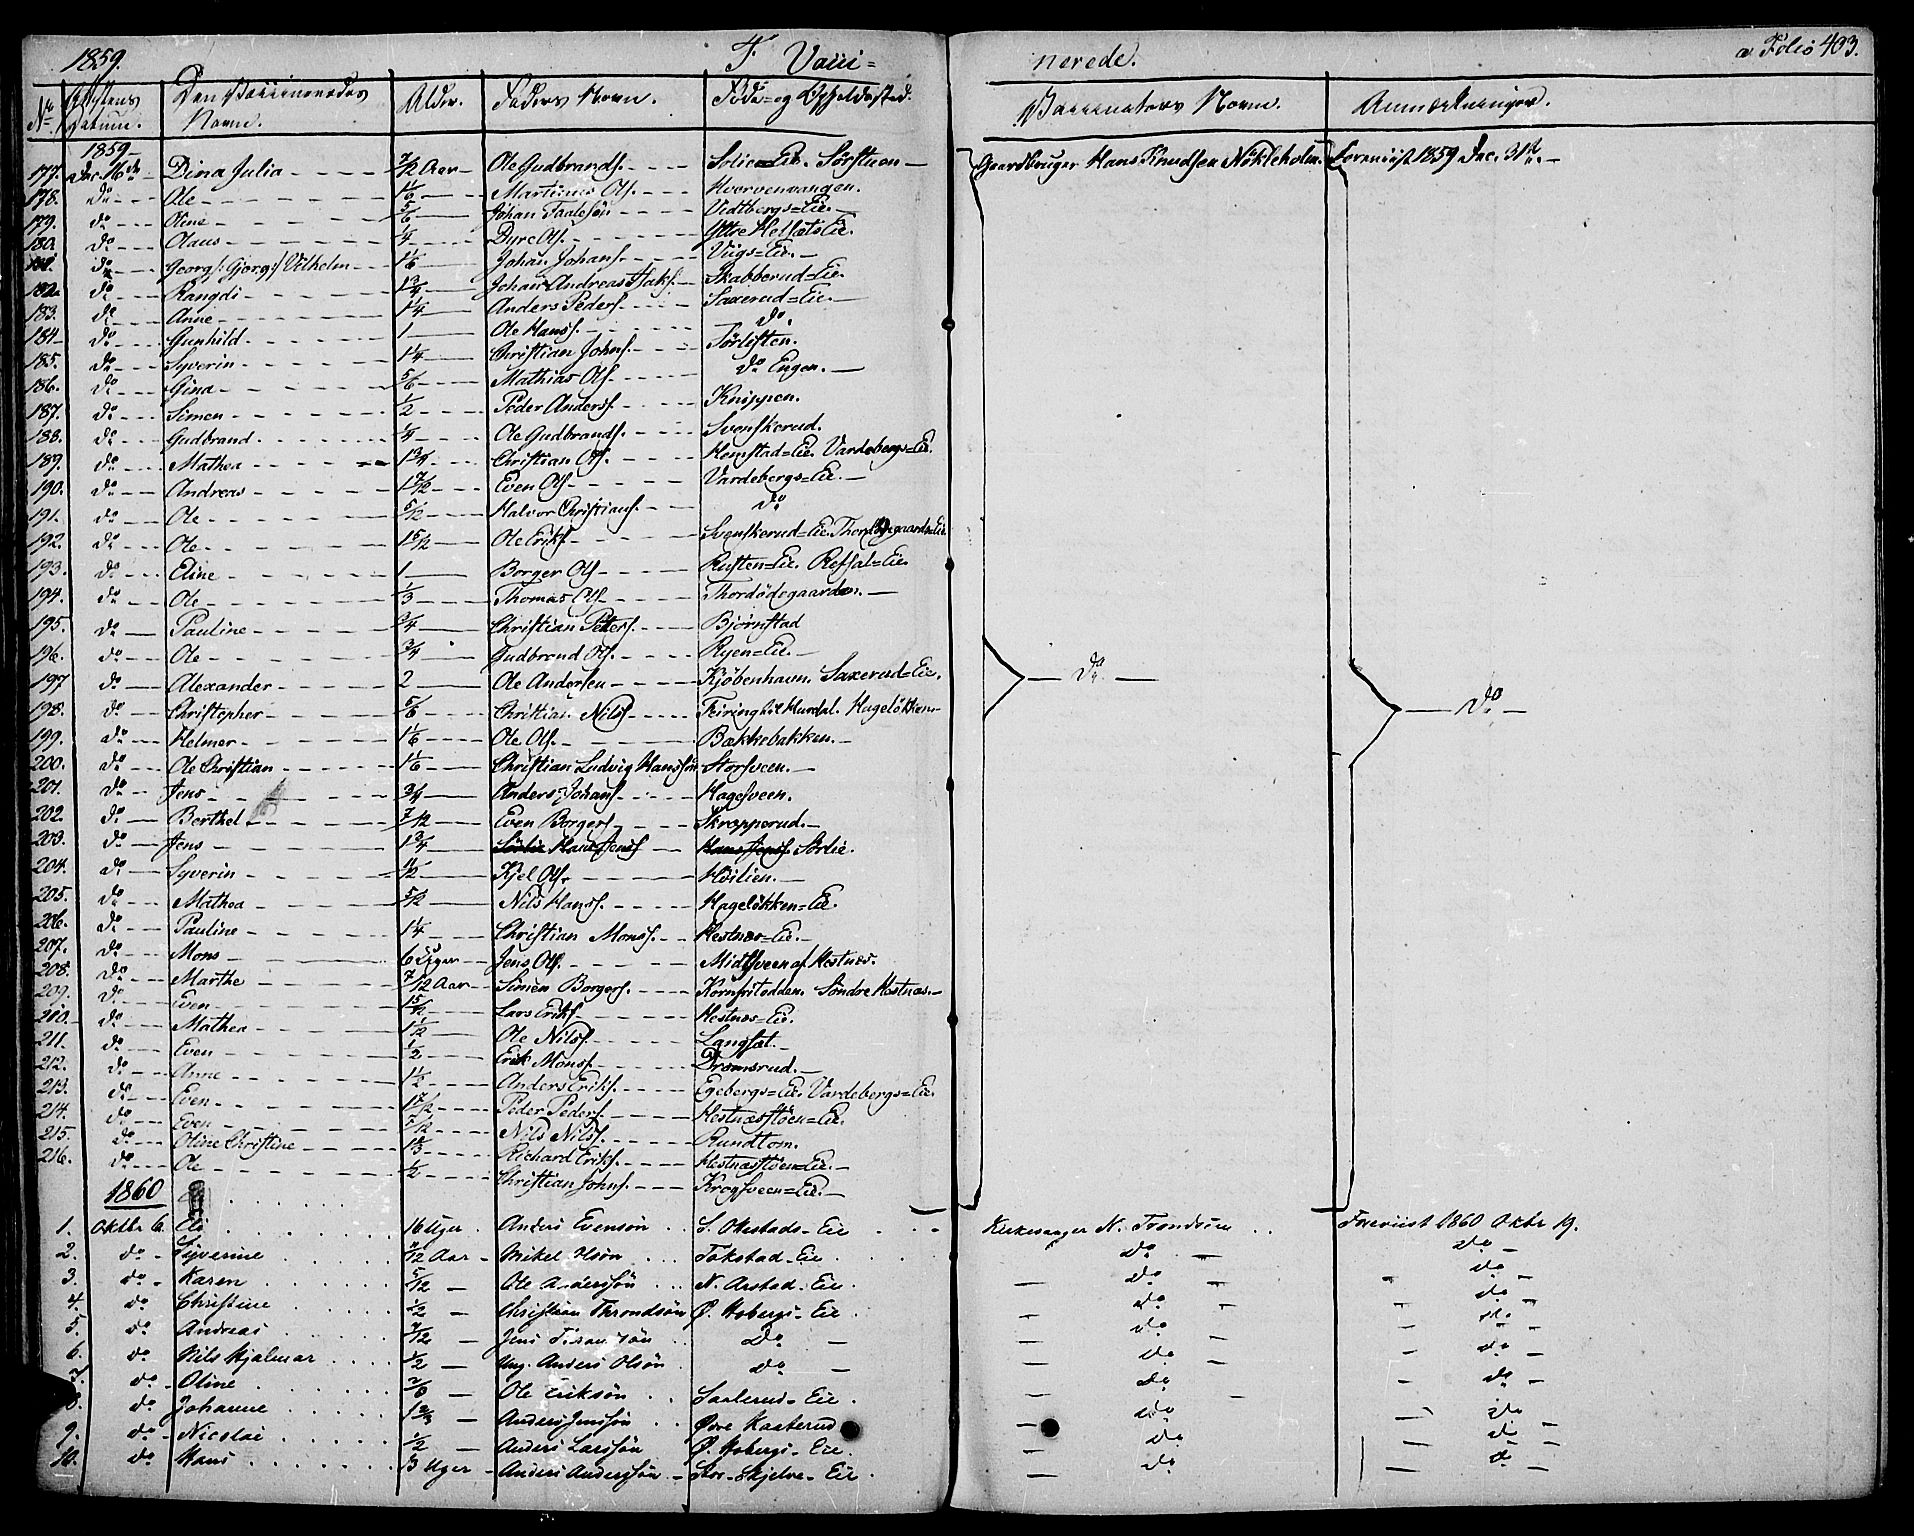 1859. F. Vacci= nerede. a Folio 403.
No Attestens Datum. Den Vaccineredes Navn. Alder. Faders Navn. Føde= og Opholdssted. Vaccinateurs Navn. Anmærkninger.
1859
177. Dec. 16de Dina Julia 7/12 Aar Ole Gudbrands. Solien=Eie. Sørstuen Gaardbruger Hans Knudsen Nökleholm. Foreviist 1859 Dec. 31te
178. do Ole 1 1/6 Martinus Ols. Hvervenvangen.
179. do Oline 5/6 Johan Paalesøn Vidtbergs=Eie.
180. do Olaus Byre Ols. Ytre Helsæts Eie.
181. do Georg Vilhelm 1 1/6 Johan Johans. Viigs=Eie.
182. do Rangdi 1 3/4 Johan Andreas Isaks. Skabberud=Eie.
183. do Anne 1 1/4 Anders Peders. Saxerud=Eie.
184. do Gunhild 1 Ole Hanss. do.
185. do Syverin 1 1/4 Christian Johns. Sørlisten.
186. do Gina 5/6 Mathias Ols. do Engen.
187. do Simen 1/2 Peder Anders. Knippen.
188. do Gudbrand 1/4 Ole Gudbrands. Svenskerud.
189. do Mathea 1 3/4 Christian Ols. Hemstad=Eie. Vardebergs=Eie.
190. do Andreas 1 7/12 Even Ols. Vardebergs=Eie.
191. do Ole 5/12 Halvor Christians. do
192. do Ole 1 5/12 Ole Eriks. Svenskerud=Eie. Thordödegaards=Eie.
193. do Eline 1 Borger Ols. Rusten=Eie. Refsal=Eie.
194. do Ole 1/3 Thomas Ols. Thordödegaarden.
195. do Pauline 3/4 Christian Petters. Bjørnstad
196. do Ole 3/4 Gudbrand Ols. Ryen=Eie.
197 do Alexander 2 Ole Andersen Kjöbenhavn. Saxerud=Eie. do do
198. do Christopher 5/6 Christian Nils. Feiring til Hurdal. Hagelökken
199. do Helmer 1 1/6 Ole Ols. Bækkebakken.
200. do Ole Christian 1 1/6 Christian Ludvig Hanssøn Storsveen.
201. do Jens 3/4 Anders Johans. Hagesveen.
202. do Berthel 7/12 Even Borgers. Skrepperud.
203. do Jens 1 3/4 Sørlie Hans Jens. Hans Jens. Sørlie.
204. do Syverin 11/12 Kjel Ols. Höilien.
205. do Mathea 5/12 Nils Hans. Hagelökken=Eie.
206. do Pauline 1 1/4 Christian Mons. Hestnæs=Eie.
207. do Mons 6 Uger Jens Ols. Midtsveen af Hestnæs.
208. do Marthe 7/12 Aar Simen Borgers. Kornfritodden. Söndre Hestnæs.
209. do Even 1 5/12 Lars Eriks. Hestnæs=Eie.
210. do Mathea 1 1/12 Ole Nils. Langset.
211. do Even 1/2 Erik Mons. Dromsrud.
212. do Anne 1 1/2 Anders Eriks. Egebergs=Eie. Vardebergs=Eie.
213. do Even 1 7/12 Peder Peders. Hestnæsstöen=Eie.
214. do Even 7/12 Nils Nils. Rundtom.
215. do Oline Christine 1 1/3 Richard Eriks. Hestnæsstöen=Eie.
216. do Ole 1/2 Christian Johns. Krogsveen=Eie.
1860
1. Oktbr 6. Ole 16 Uger Anders Evensøn S. Okstads-Eie Kirkesanger N. Trondsen Foreviist 1860 Oktbr 19.
2. do Syverine /12 Aar Mikel Olsøn Tokstad-Eie do do
3. do Karen 5/12 Ole Anderssøn N. Arstad-Eie do do
4. do Christine 1/2 Christian Throndsøn Ø. Hobergs-Eie do do
5. do Andreas 7/12 Jens do do do
6. do Nils Hjalmar 1/2 Ung. Anders Olsøn do do do
7. do Oline Ole Eriksøn Saxlerud-Eie do do
8. do Johanne 1 2/3 Anders Jenssøn Øvre Kasterud do do
9. do Nicolai 1/2 Anders Larssøn Ø. Hobergs-Eie do do
10. do Hans 13 Uger Anders Anderssøn Store-Skjelve-Eie do do